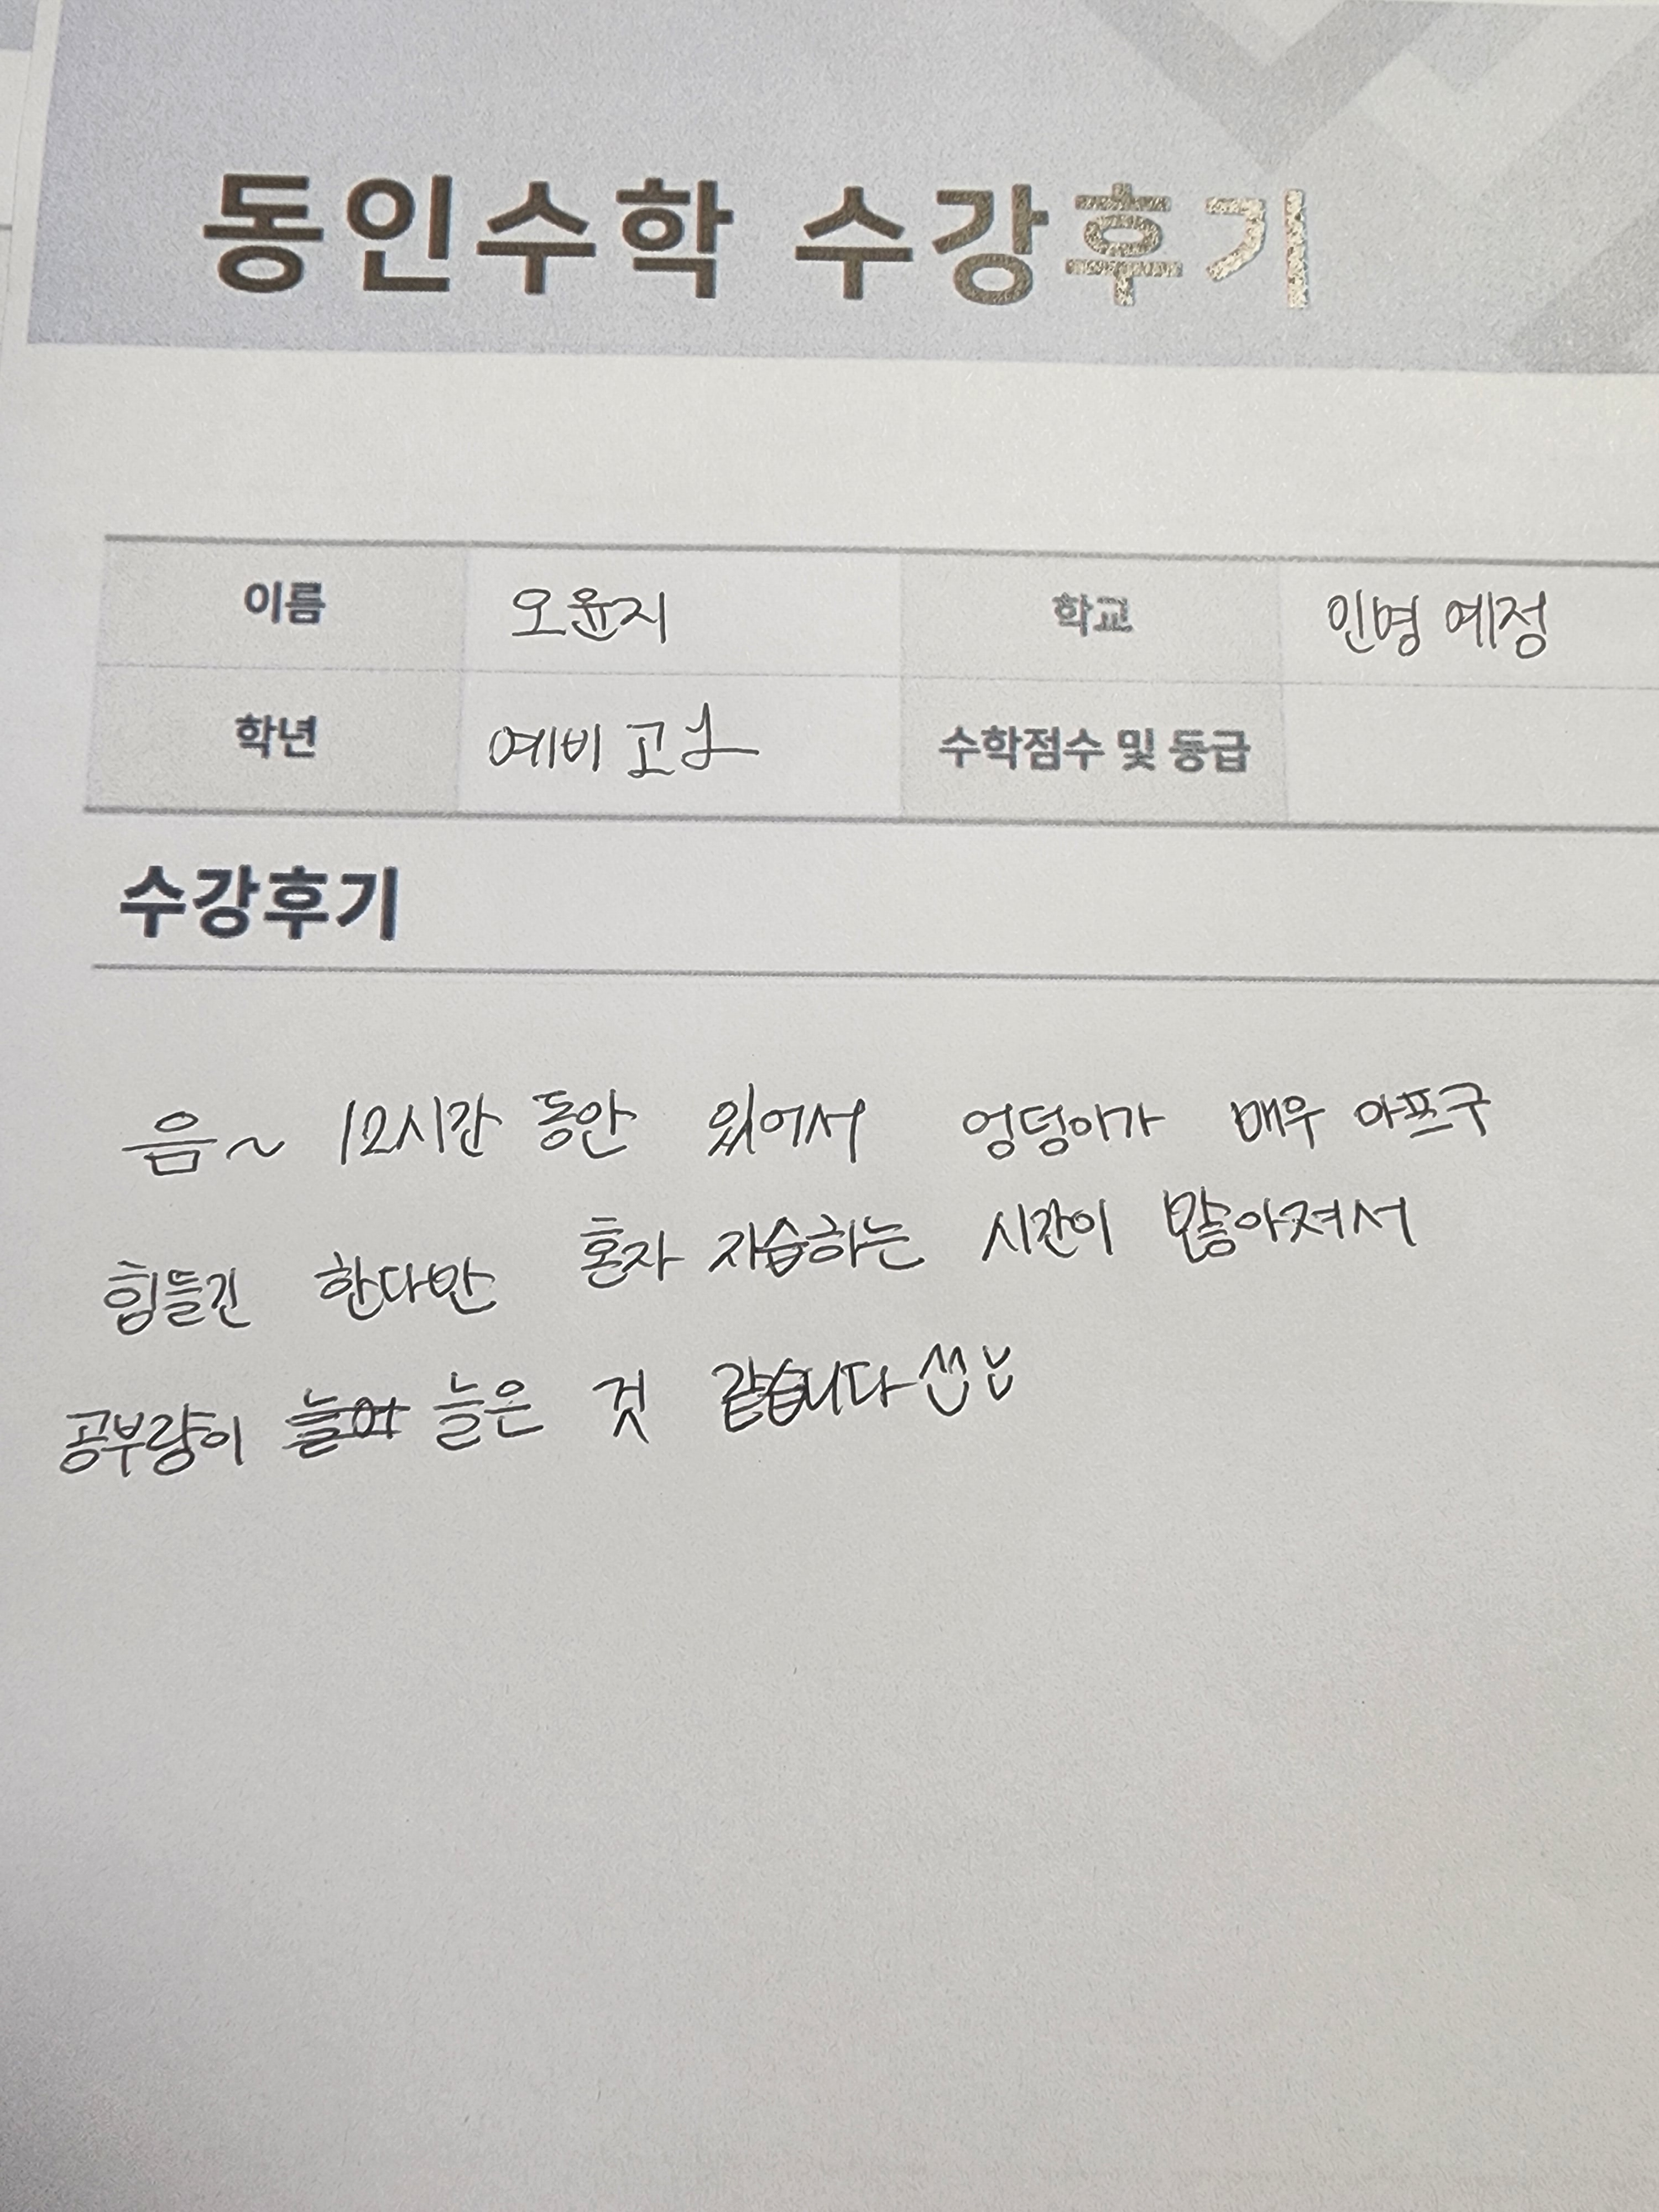 동인수학 수강후기
이름 오윤지 학교 인명 예정
학년 예비 고1 수학점수 및 등급
수강후기
음~ 12시간 동안 있어서 엉덩이가 매우 아프구
힘들긴 한다만 혼자 자습하는 시간이 많아져서
공부량이 늘은 것 같습니다